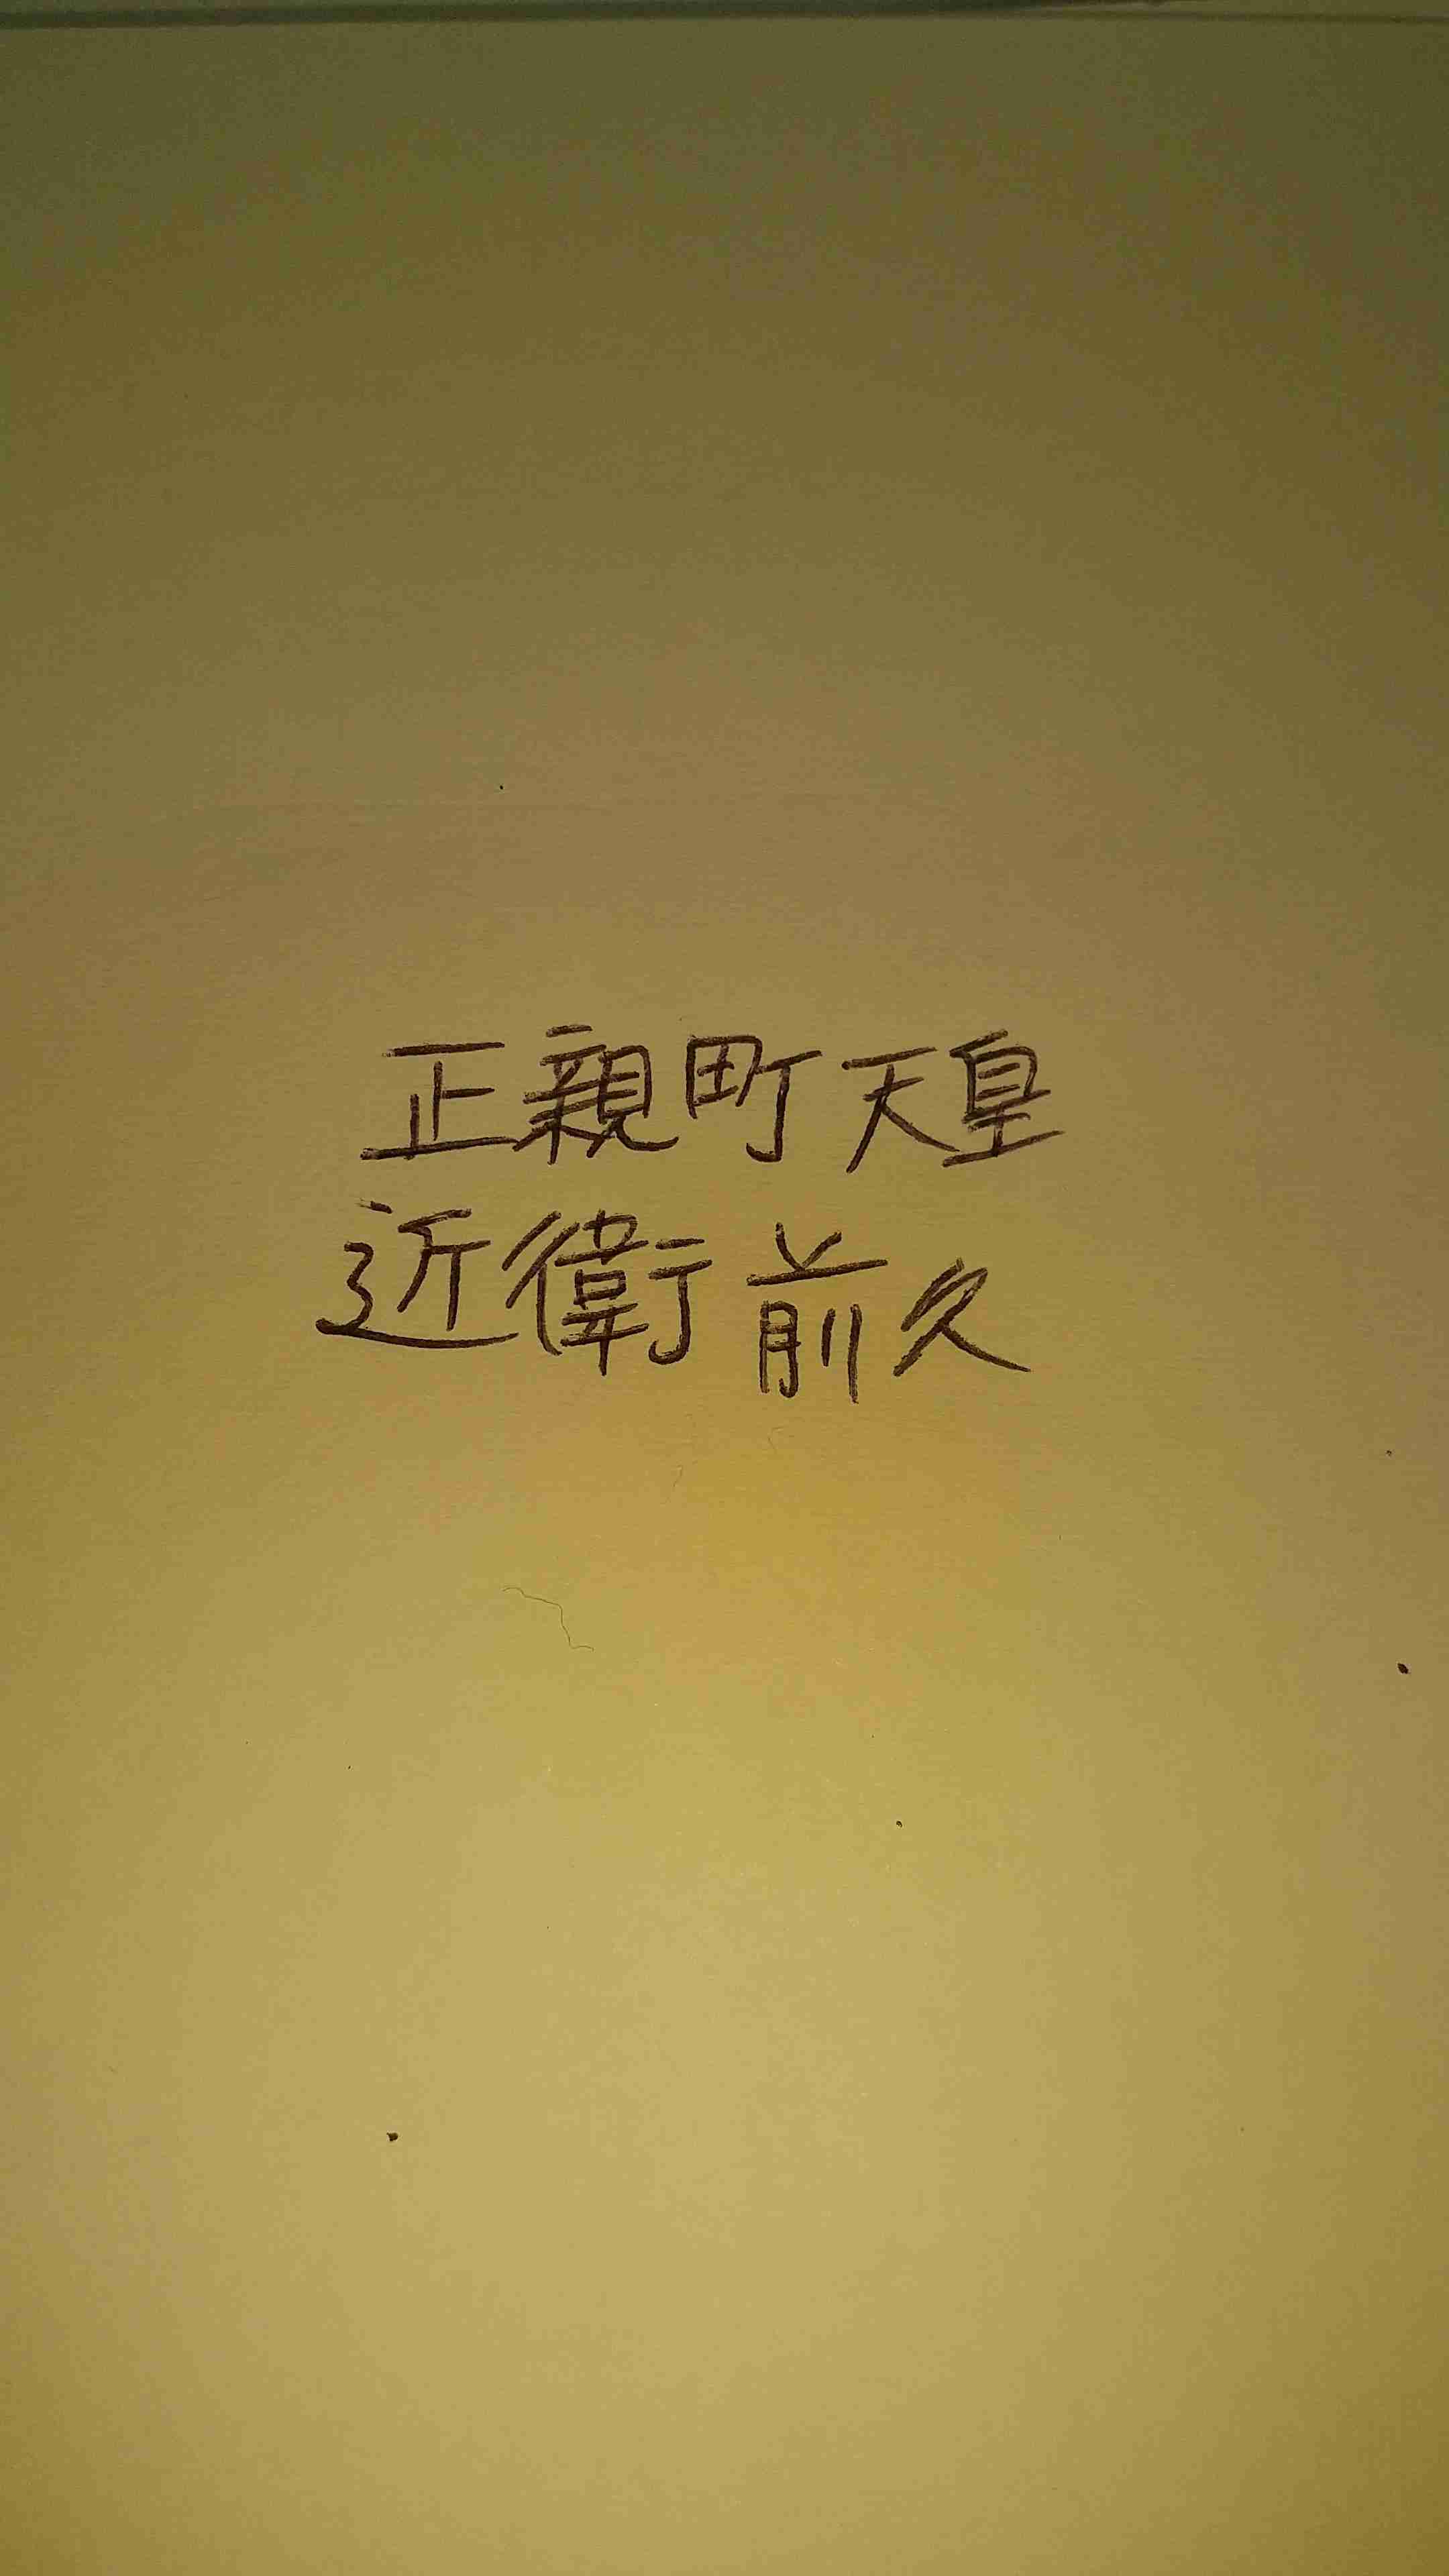 正親町天皇
近衛前久